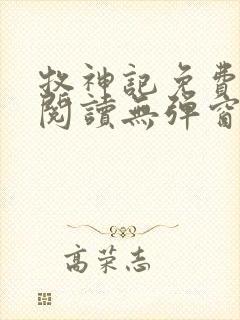 牧神記免費
閱讀無彈窗
高荣志